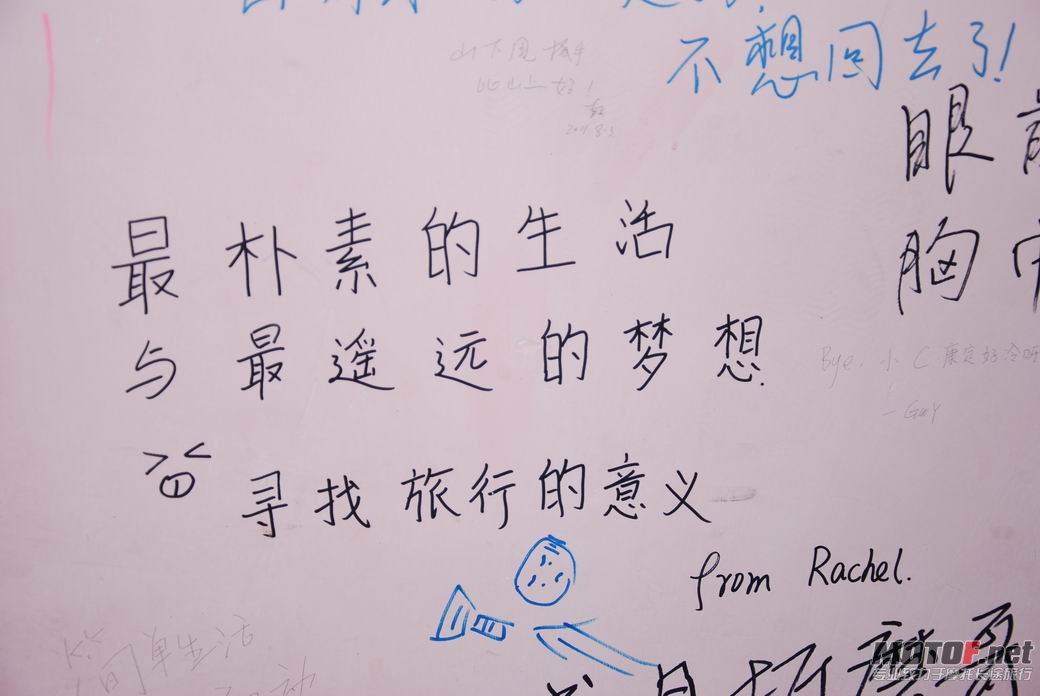 不想回去了!
山下
比山上好!
2011.8.3
眼前
胸中
最朴素的生活
与最遥远的梦想.
Bye, 小C 康定好冷呀
— Guy
寻找旅行的意义
from Rachel.
简单生活
MOTOF.net
专业致力于摩托长途旅行